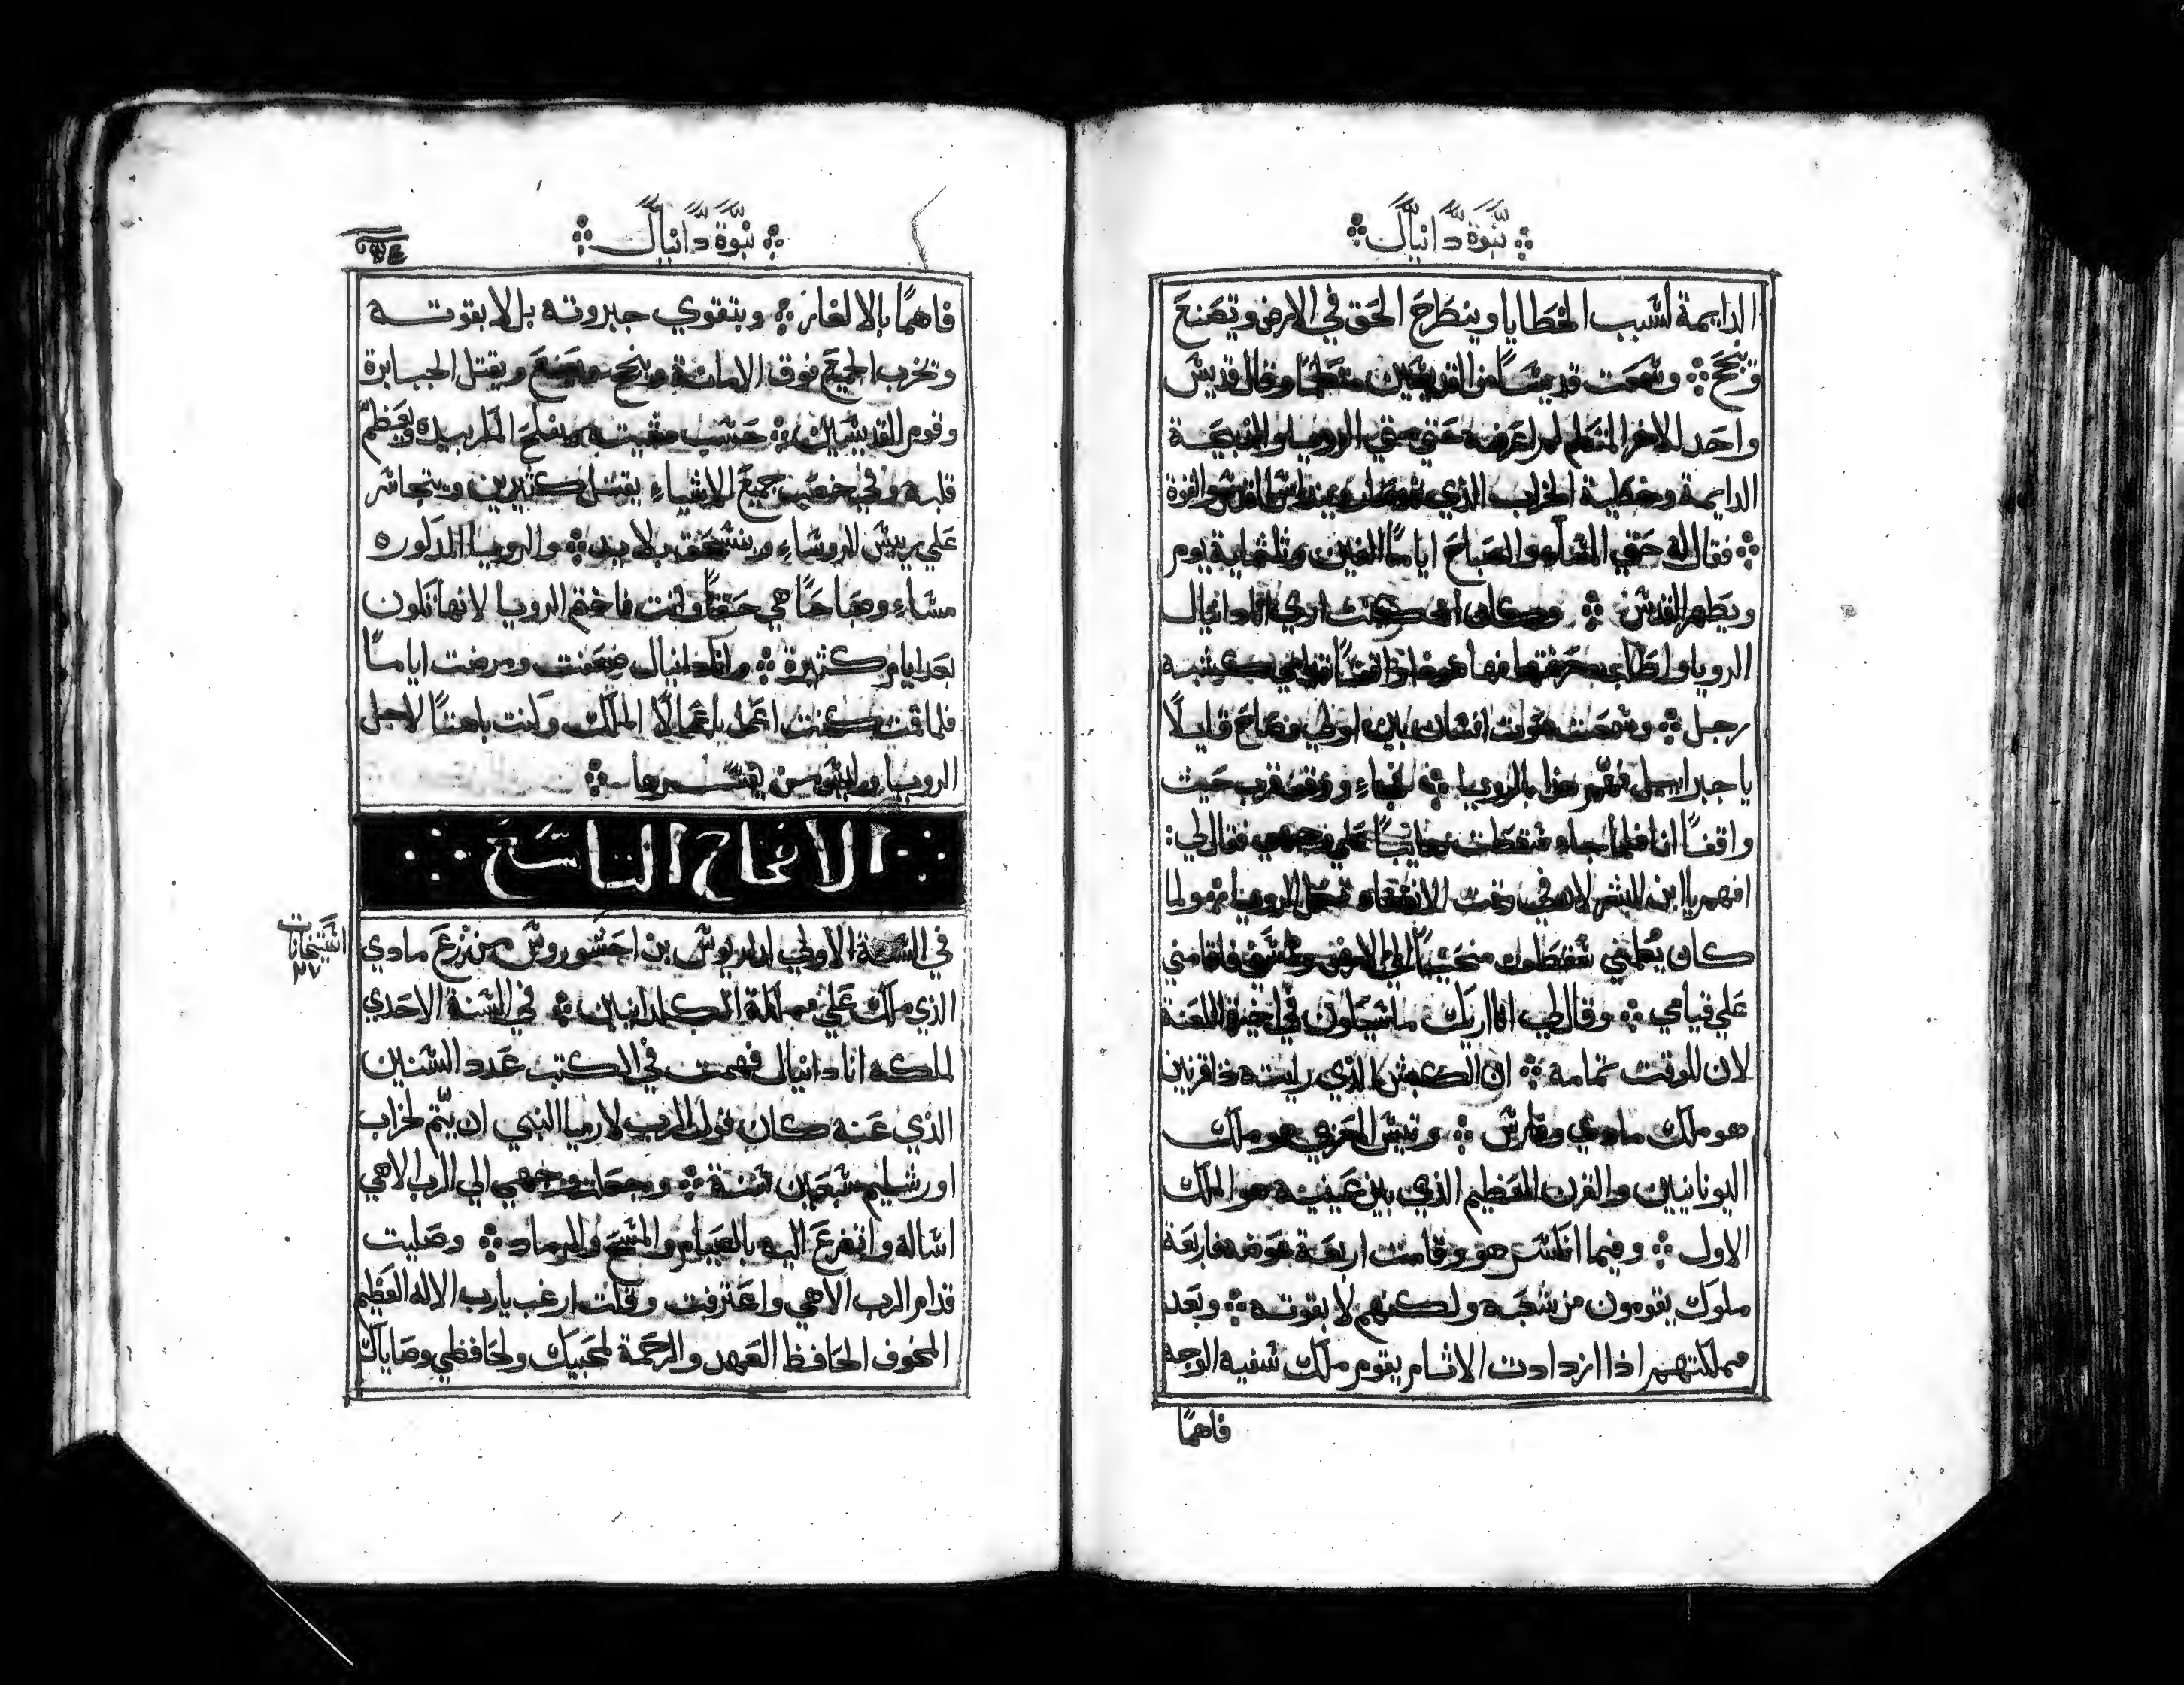 نبوة دانيال
الدايمة لسبب الخطايا وينطرح الحق في الارض وتصنع
وتنجح وسمعت قديسًا من القديسين متكلمًا وقال قديس
واحد للاخر المتكلم لم اعرفه حتى متي الرويا والذبيحة
الدايمة وخطية الخراب الذي القدس والقوة
فقال له حتي المسآء والصباح ايامًا الفين وثلثماية يوم
ويطهر القدس وكان اذ كنت اري انا دانيال
الرويا واطلب فهما كشبه
رجل وسمعت صوت انسان بين اولاي وصاح قايلًا
يا جبراييل فهم هذا بالرويا فجاء ووقف قرب حيث
واقفًا انا فلما جاء سقطت علي وجهي فقال لي
افهم يا ابن البشر لان في وقت الانقضاء تكمل الرويا ولما
كان يكلمني سقطت الي الارض فاقامني
علي قيامي وقال لي انا اريك ما سيكون في اخيرة اللعنة
لان للوقت تمامه ان الكبش الذي رايته ذا قرنين
هو ملك مادي وفارس وتيس المعزي هو ملك
اليونانيين والقرن العظيم الذي بين عينيه هو الملك
الاول وفيما انكسر هو وقامت اربعة عوضه فاربعة
ملوك يقومون من شعبه ولكنهم لا بقوته وبعد
مملكتهم اذا ازدادت الاثام يقوم ملك سفيه الوجه
فاهمًا
نبوة دانيال
فاهمًا بالالغاز ويتقوي جبروته بل لا بقوته
وتخرب الجميع فوق الامانة وينجح ويصنع ويقتل الجبابرة
وقوم القديسين حسب مشيته وينفلح المكر بيده ويعظم
قلبه وفي خصب جميع الاشياء يقتل كثيرين ويتجاسر
علي رييس الروساء وينسحق بلا يد والرويا المذكوره
مساء وصباحًا هي حقًا وانت فاختم الرويا لانها تكون
بعد ايام كثيرة وانا دانيال ضعفت ومرضت ايامًا
فلما قمت كنت اعمل باعمال الملك وكنت باهتًا لاجل
الرويا وليس من يفسرها
الاصحاح التاسع
في السنة الاولي لداريوش بن احشوروش من زرع مادي
الذي ملك علي مملكة الكلدانيين في السنة الاحدي
لملكه انا دانيال فهمت في الكتب عدد السنين
الذي عنه كان قول الرب لارميا النبي ان يتم لخراب
اورشليم سبعين سنة وجعلت وجهي الي الرب الاهي
اساله واتضرع اليه بالصيام والمسح والرماد وصليت
قدام الرب الاهي واعترفت وقلت ارغب يارب الاله العظيم
المخوف الحافظ العهد والرحمة لمحبيك ولحافظي وصاياك